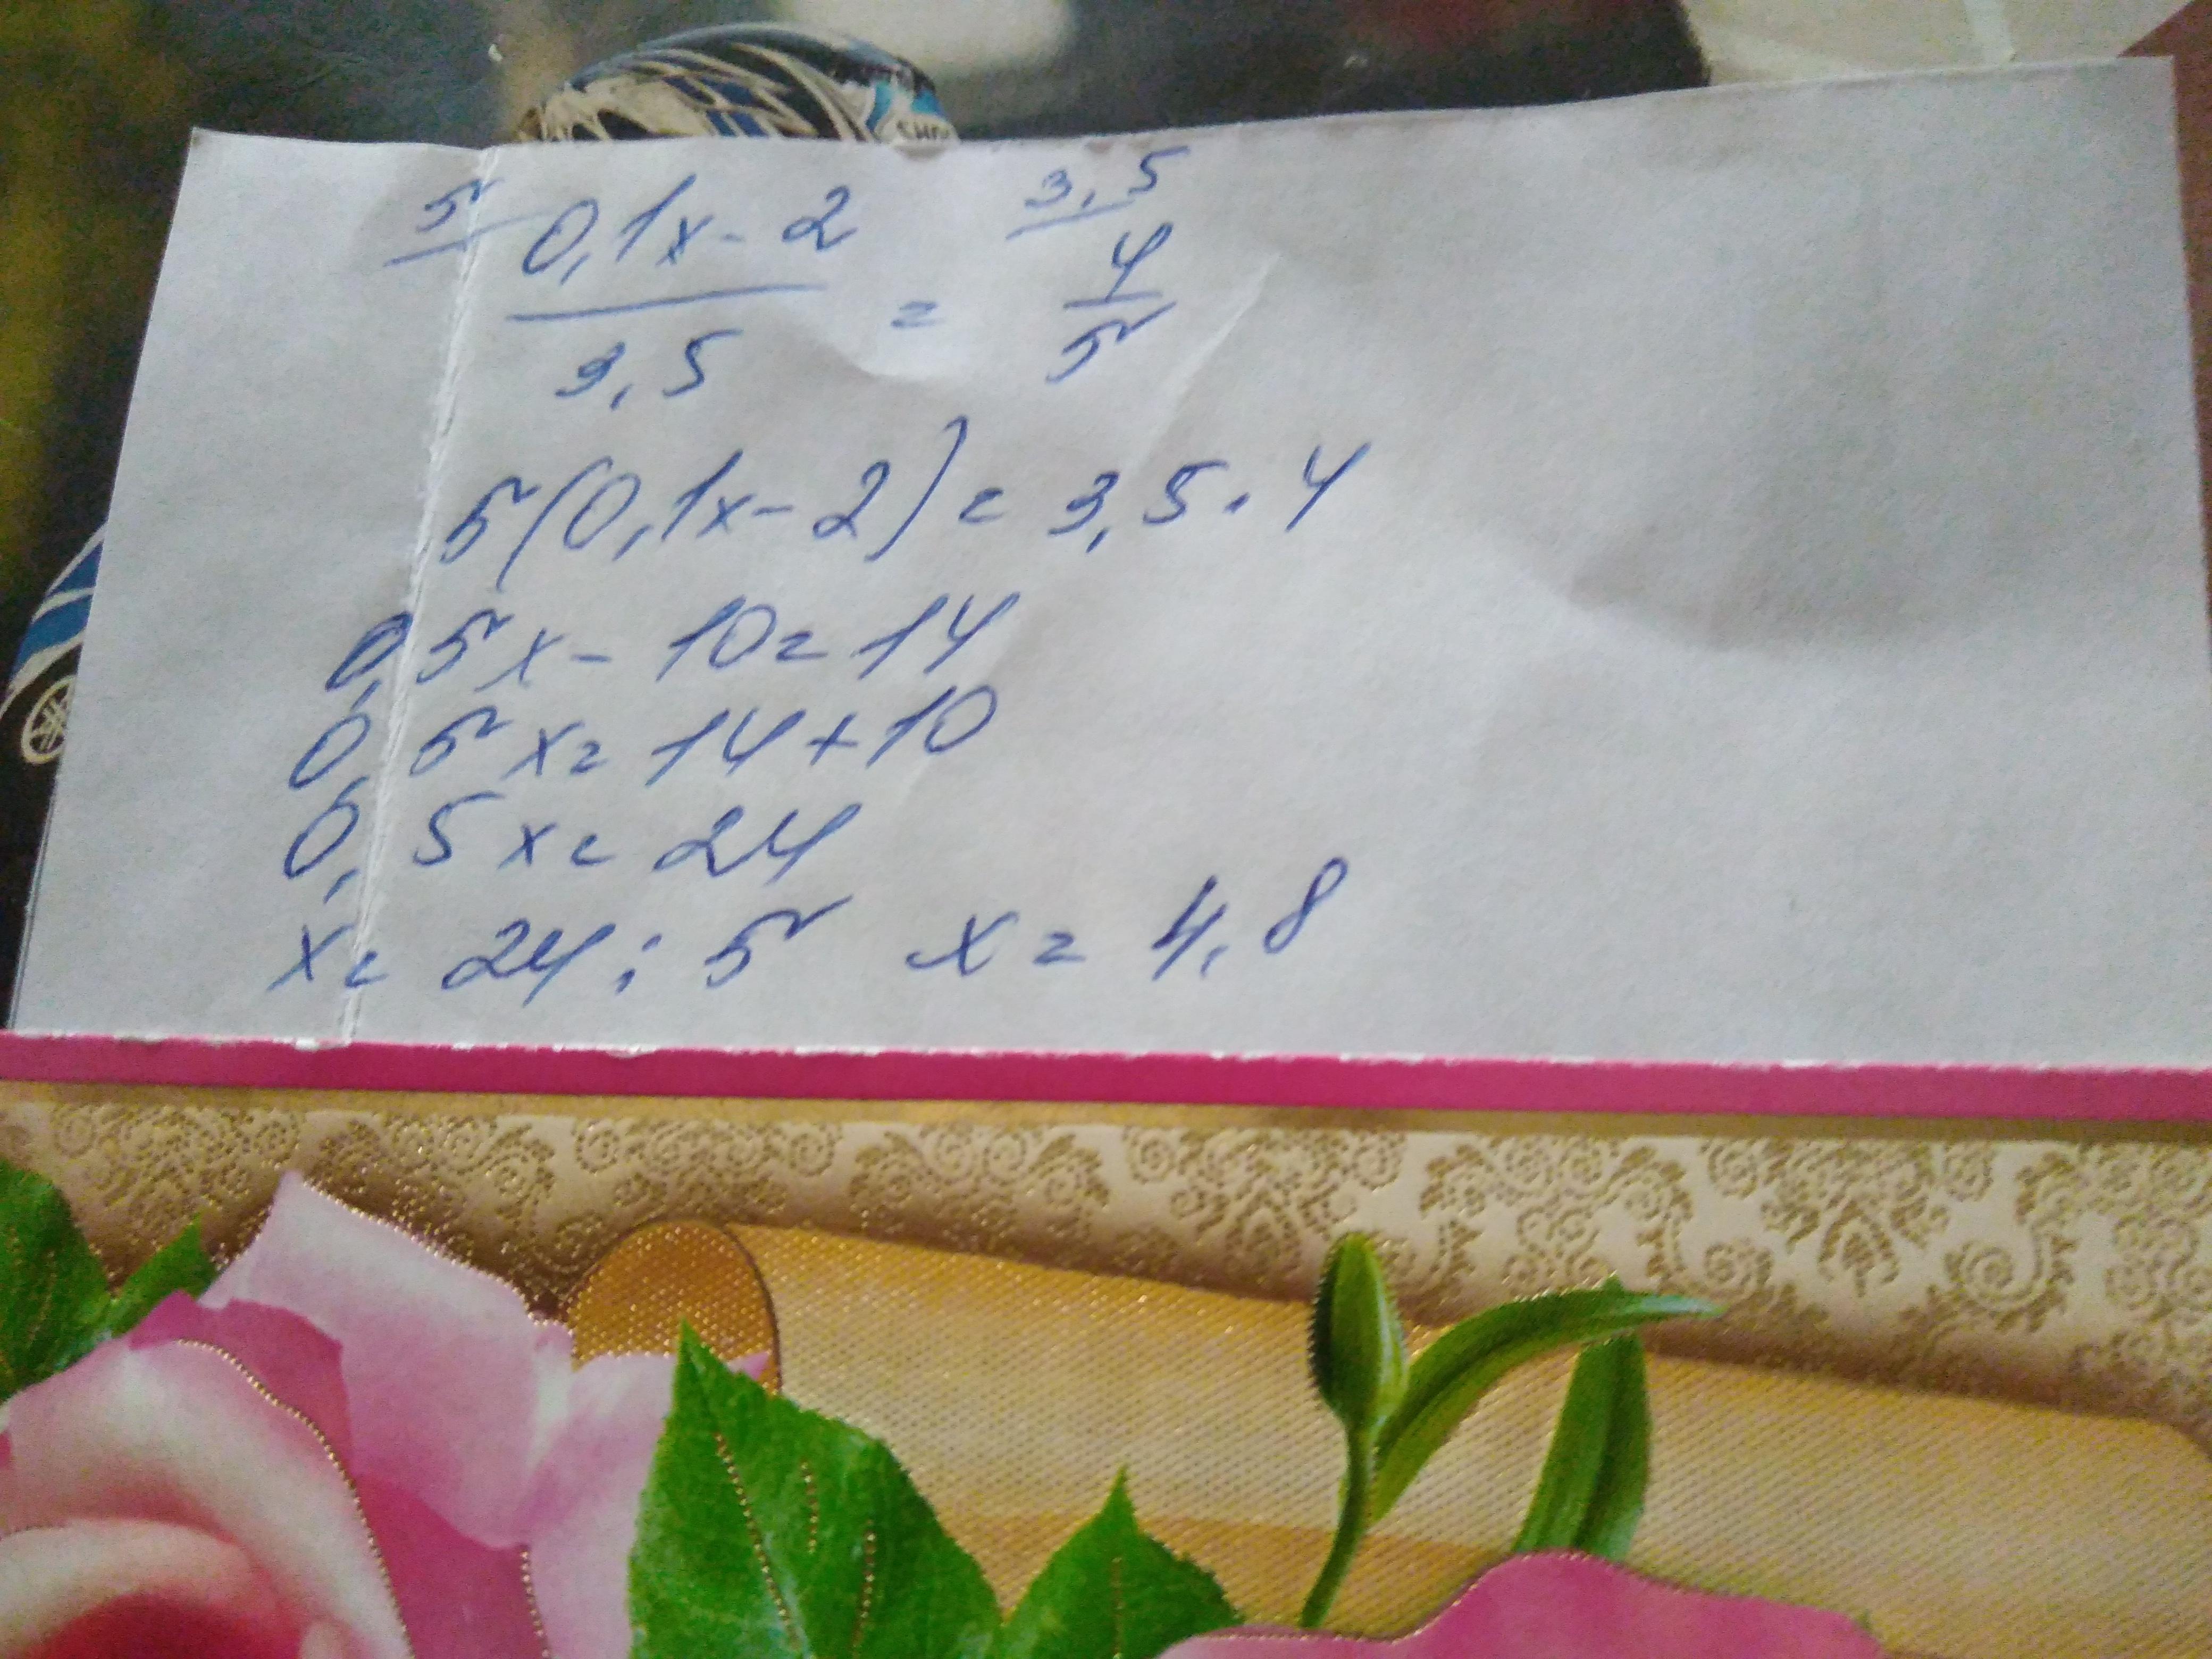 5 0,1x - 2 3,5
3,5 = 4/5
5(0,1x - 2) = 3,5 · 4
0,5x - 10 = 14
0,5x = 14 + 10
0,5x = 24
x = 24 : 5 x = 4,8